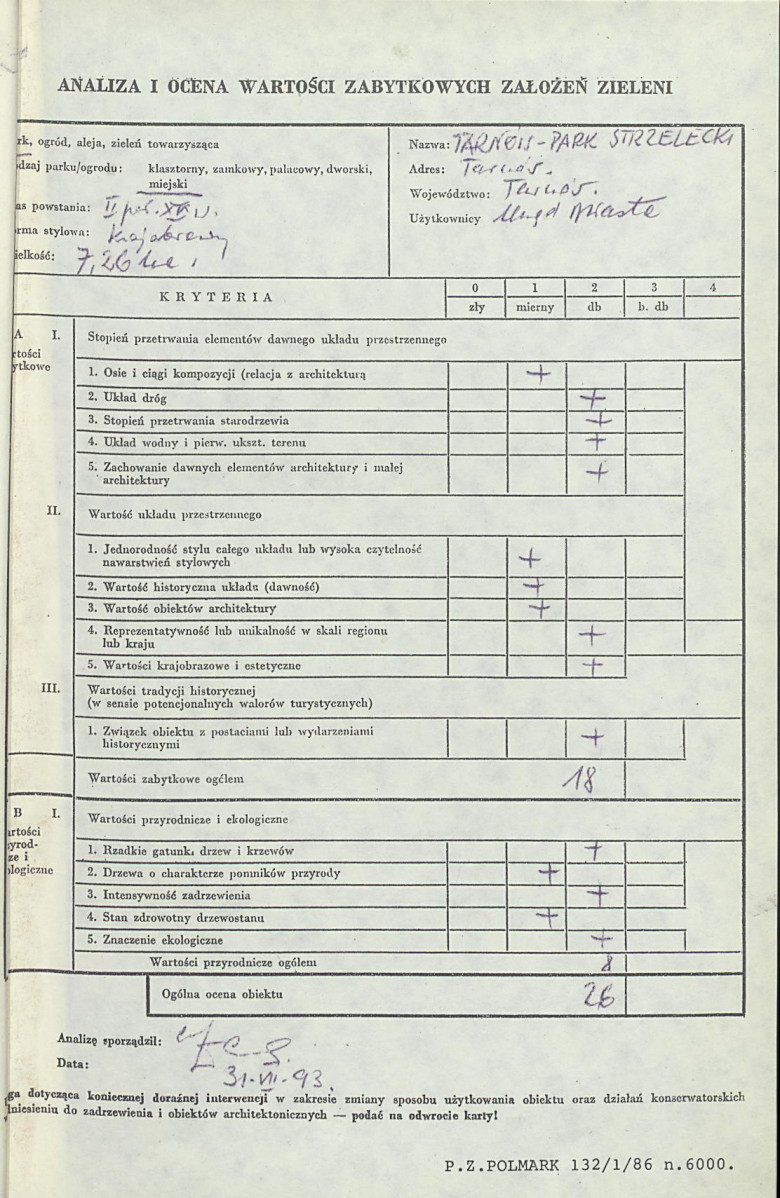 ANALIZA I OCENA WARTOŚCI ZABYTKOWYCH ZAŁOŻEŃ ZIELENI
rk, ogród, aleja, zieleń towarzysząca
dzaj parku/ogrodu: klasztorny, zamkowy, pałacowy, dworski,
miejski
as powstania: II poł. XIX w.
rma stylowa: krajobrazowy
ielkość: 7,26 ha
Nazwa: TARNÓW - PARK STRZELECKI
Adres: Tarnów.
Województwo: Tarnów.
Użytkownicy Urząd Miasta
KRYTERIA
0 1 2 3 4
zły mierny db b. db
A I. Stopień przetrwania elementów dawnego układu przestrzennego
rtości
ytkowe
1. Osie i ciągi kompozycji (relacja z architekturą +
2. Układ dróg +
3. Stopień przetrwania starodrzewia +
4. Układ wodny i pierw. ukszt. terenu +
5. Zachowanie dawnych elementów architektury i małej
architektury +
II. Wartość układu przestrzennego
1. Jednorodność stylu całego układu lub wysoka czytelność
nawarstwień stylowych +
2. Wartość historyczna układu (dawność) +
3. Wartość obiektów architektury +
4. Reprezentatywność lub unikalność w skali regionu
lub kraju +
5. Wartości krajobrazowe i estetyczne +
III. Wartości tradycji historycznej
(w sensie potencjonalnych walorów turystycznych)
1. Związek obiektu z postaciami lub wydarzeniami
historycznymi +
Wartości zabytkowe ogólem 18
B I. Wartości przyrodnicze i ekologiczne
rtości
yrod-
ze i
logiczne
1. Rzadkie gatunki drzew i krzewów +
2. Drzewa o charakterze pomników przyrody +
3. Intensywność zadrzewienia +
4. Stan zdrowotny drzewostanu +
5. Znaczenie ekologiczne +
Wartości przyrodnicze ogółem 8
Ogólna ocena obiektu 26
Analizę sporządził:
Data: 31.VII.93.
ga dotycząca koniecznej doraźnej interwencji w zakresie zmiany sposobu użytkowania obiektu oraz działań konserwatorskich
niesieniu do zadrzewienia i obiektów architektonicznych — podać na odwrocie karty!
P.Z.POLMARK 132/1/86 n.6000.